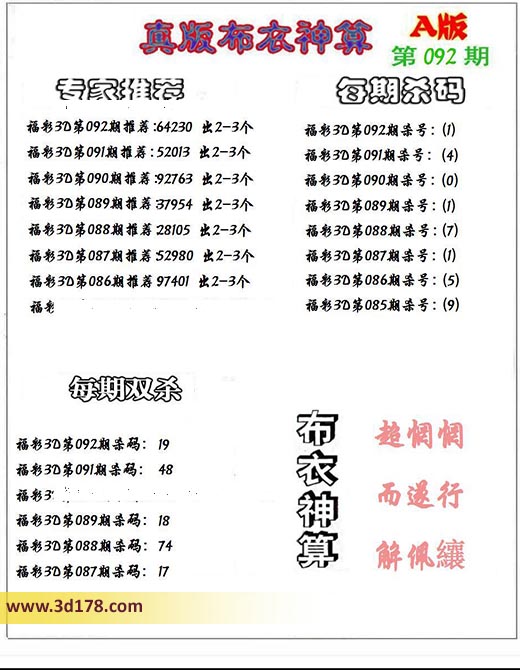 真版布衣神算
A版
第 092 期
专家推荐
福彩3D第092期推荐:64230 出2-3个
福彩3D第091期推荐:52013 出2-3个
福彩3D第090期推荐:92763 出2-3个
福彩3D第089期推荐:37954 出2-3个
福彩3D第088期推荐:28105 出2-3个
福彩3D第087期推荐:52980 出2-3个
福彩3D第086期推荐:97401 出2-3个
福彩
每期杀码
福彩3D第092期杀号:(1)
福彩3D第091期杀号:(4)
福彩3D第090期杀号:(0)
福彩3D第089期杀号:(1)
福彩3D第088期杀号:(7)
福彩3D第087期杀号:(1)
福彩3D第086期杀号:(5)
福彩3D第085期杀号:(9)
每期双杀
福彩3D第092期杀码: 19
福彩3D第091期杀码: 48
福彩3
福彩3D第089期杀码: 18
福彩3D第088期杀码: 74
福彩3D第087期杀码: 17
布衣神算
超惘惘
而遂行
解佩纕
www.3d178.com